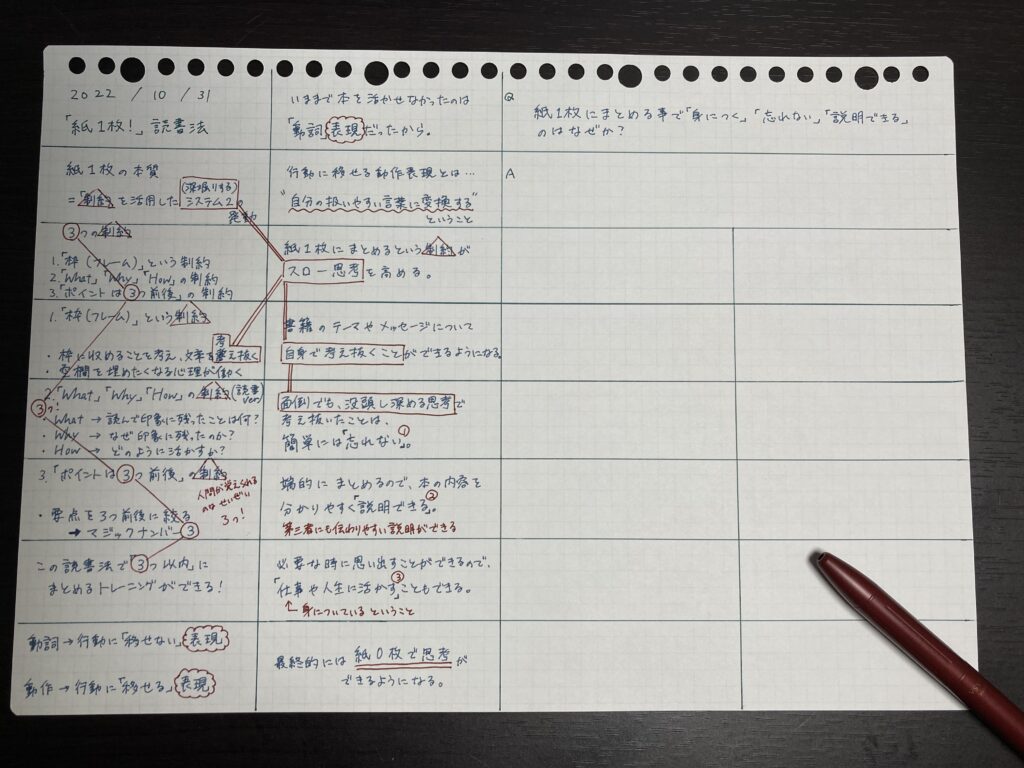 2022 / 10 / 31
「紙1枚!」読書法
紙1枚の本質
(深堀りする)
=「制約を活用したシステム2」。
発動
③つの制約
1.「枠(フレーム)」という制約
2.「What」「Why」「How」の制約
3.「ポイントは③つ前後」の制約
1.「枠(フレーム)」という制約
・枠に収めることを考え、文章を考え抜く
考
・空欄を埋めたくなる心理が働く
2.「What」「Why」「How」の制約(読書ver)
③つ!
・What → 読んで印象に残ったことは何?
・Why → なぜ印象に残ったのか?
・How → どのように活かすか?
3.「ポイントは③つ前後」の制約
人間が覚えられる
のはせいぜい
3つ!
・要点を3つ前後に絞る
→マジックナンバー③
この読書法で「③つ以内」に
まとめるトレーニングができる!
動詞→行動に「移せない」表現
動作→行動に「移せる」表現
いままで本を活かせなかったのは
「動詞表現だったから。
行動に移せる動作表現とは…
"自分の扱いやすい言葉に変換する"
ということ
紙1枚にまとめるという制約が
スロー思考を高める。
書籍のテーマやメッセージについて
自身で考え抜くことができるようになる。
面倒でも、没頭し深める思考で
考え抜いたことは、
簡単には「忘れない」①。
端的にまとめるので、本の内容を
分かりやすく「説明できる」②。
第三者にも伝わりやすい説明ができる
必要な時に思い出すことができるので、
「仕事や人生に活かす」③こともできる。
↑身についているということ
最終的には 紙0枚で思考が
できるようになる。
Q
紙1枚にまとめる事で「身につく」「忘れない」「説明できる」
のはなぜか?
A